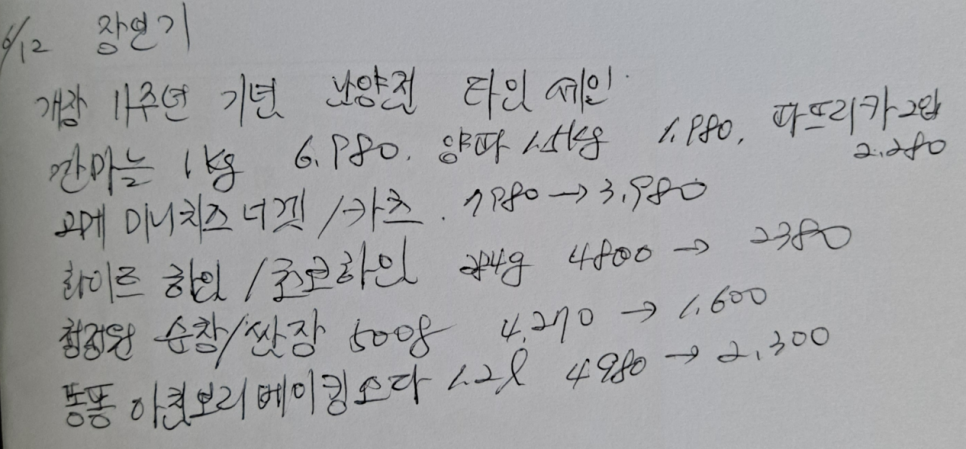 6/12 장연기
개장 11주년 기념 난양전 타임 세일
깐마늘 1kg 6.980. 양파 1.5kg 1.980. 파프리카 2입 2.280
오떼 미니치즈 너겟/카츠. 7980→3,980
화이트 하임/초코하임 284g 4800→2380
청정원 순창/쌈장 500g 4,270→1,600
똥똥 아컷보리베이킹소다 1.2l 4980→2,300